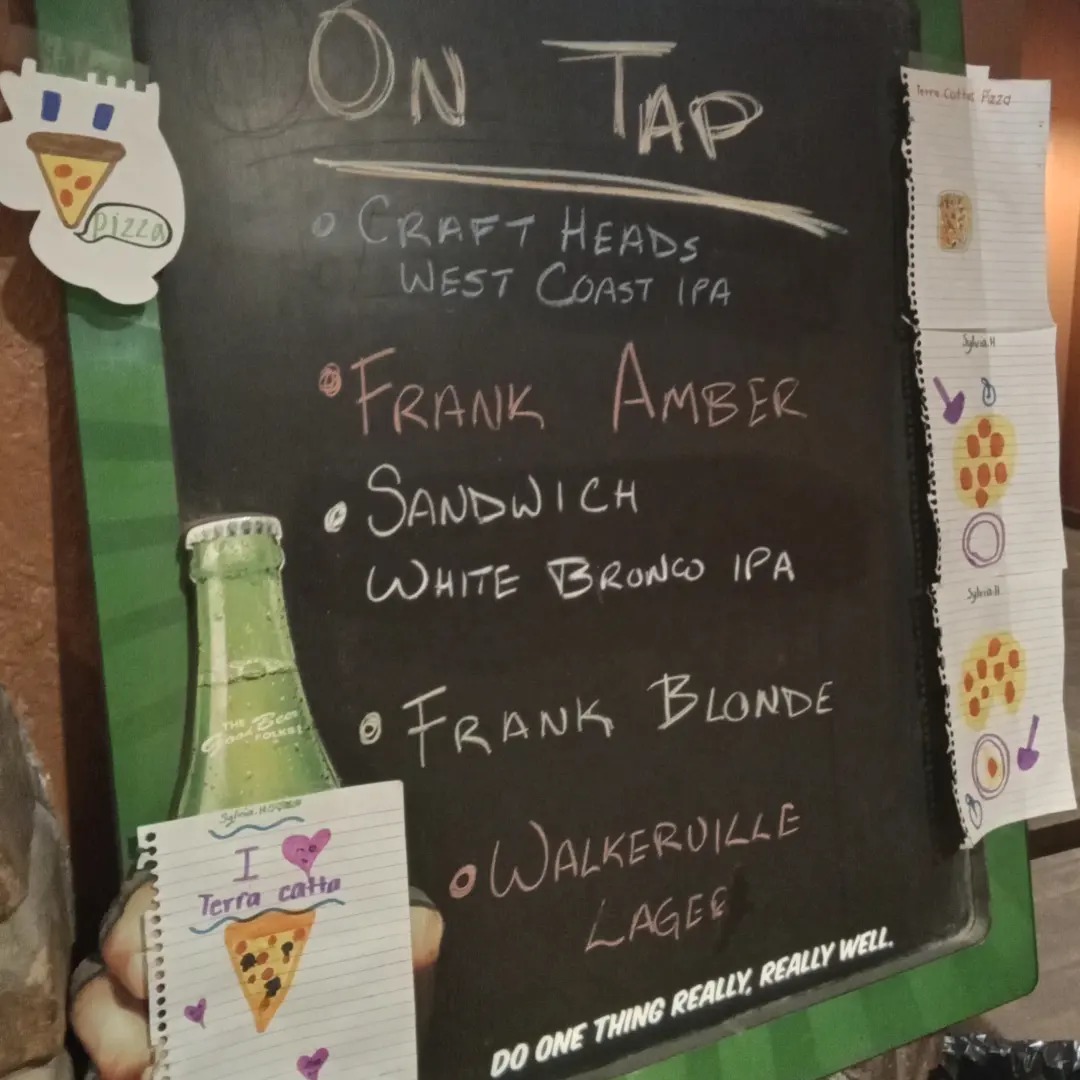 ON TAP
CRAFT HEADS
WEST COAST IPA
FRANK AMBER
SANDWICH
WHITE BRONCO IPA
FRANK BLONDE
WALKERVILLE
LAGER
DO ONE THING REALLY, REALLY WELL.
pizza
THE
Good Beer
FOLKS!
I
Terra catta
Terra Cotta Pizza
Sylvia.H
Sylvia.H